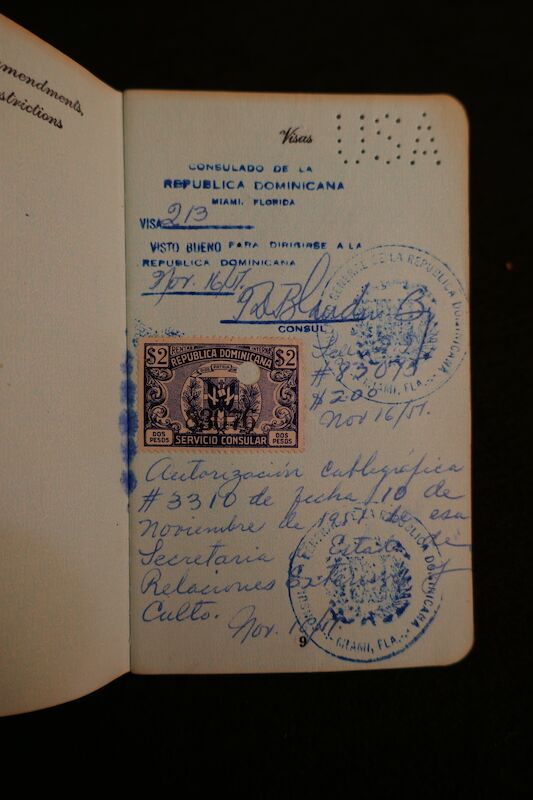 mendments,
strictions
Visas
USA
CONSULADO DE LA
REPUBLICA DOMINICANA
MIAMI, FLORIDA
VISA 213
VISTO BUENO PARA DIRIGIRSE A LA
REPUBLICA DOMINICANA
Nov. 16/51.
CONSUL
GENERAL DE LA REPUBLICA DOMINICANA
MIAMI, FLA.
$2.00
Nov 16/51.
$2 $2
REPUBLICA DOMINICANA
DIOS PATRIA
DOS PESOS SERVICIO CONSULAR DOS PESOS
Autorización cablegráfica
#3310 de fecha 10 de
Noviembre de 1951 de esa
Secretaria de Estado de
Relaciones Exteriores y
Culto.
Nov. 16/51.
REPUBLICA DOMINICANA
MIAMI, FLA.
9